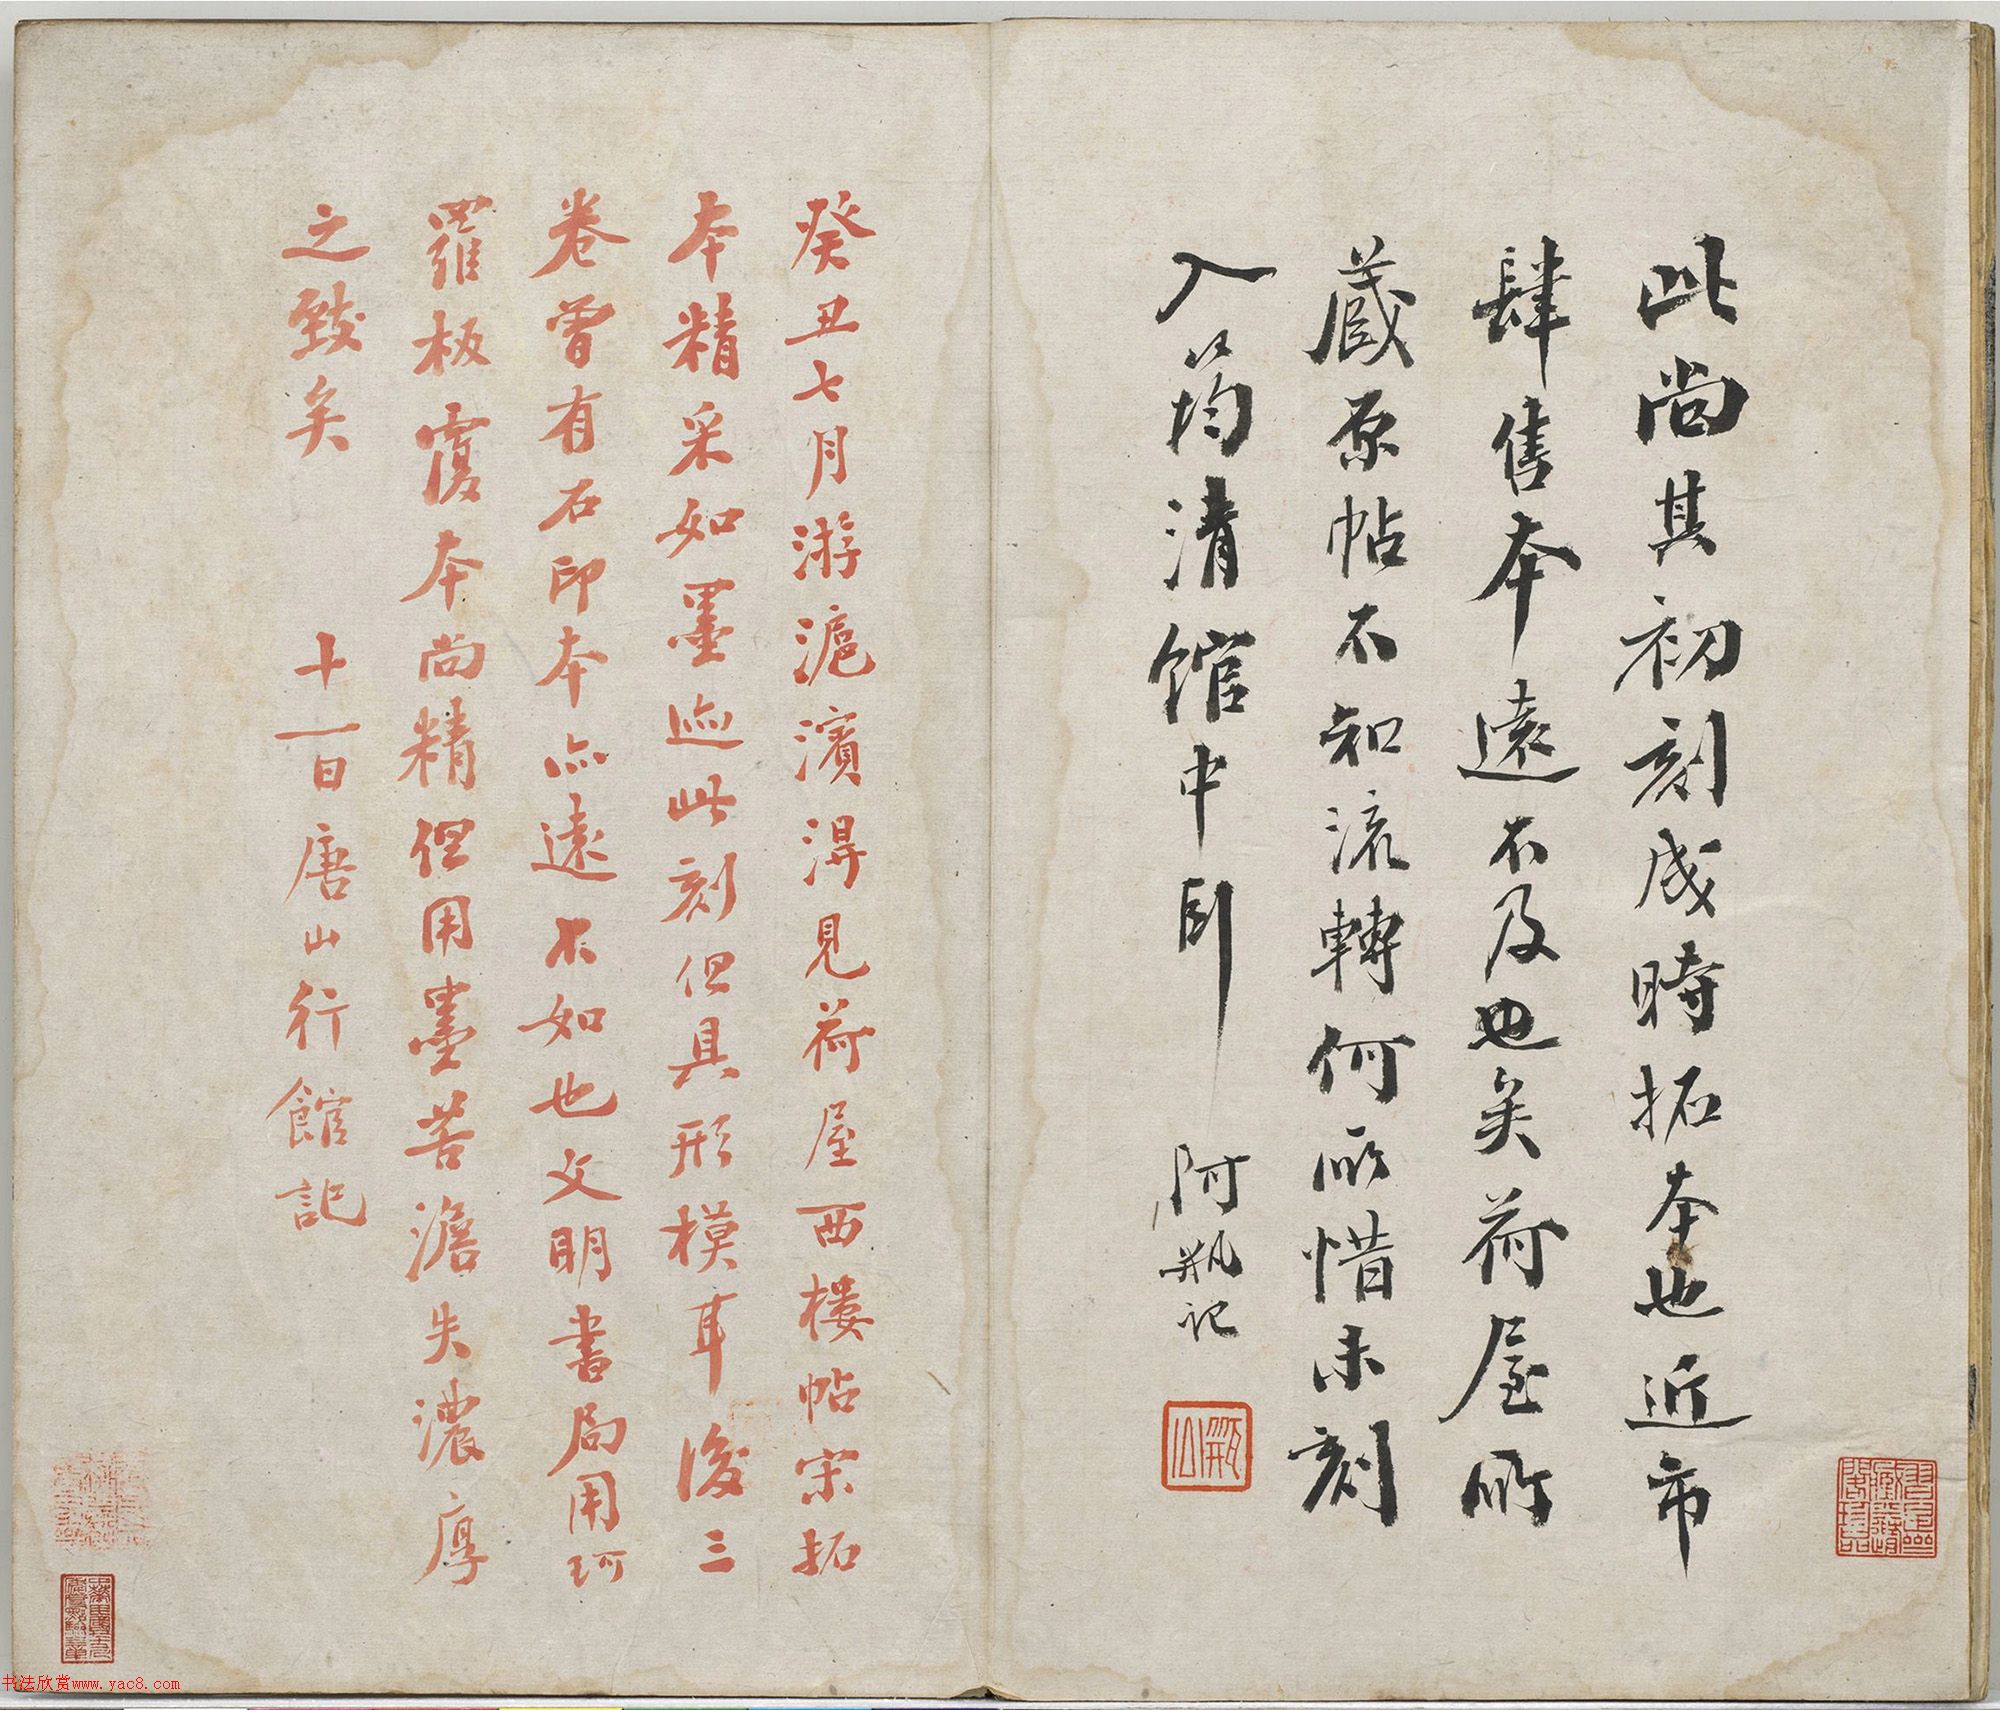 此尚其初刻成時拓本也近市
肆售本遠不及也矣荷屋所
藏原帖不知流轉何所惜未刻
入筠清館中耶　阿瓶記
癸丑七月游滬濱得見荷屋西樓帖宋拓
本精采如墨迹此刻但具形模耳後三
卷曾有石印本亦遠不如也文明書局用珂
羅板覆本尚精但用墨苦澹失濃厚
之致矣　十一日唐山行館記
书法欣赏www.yac8.com